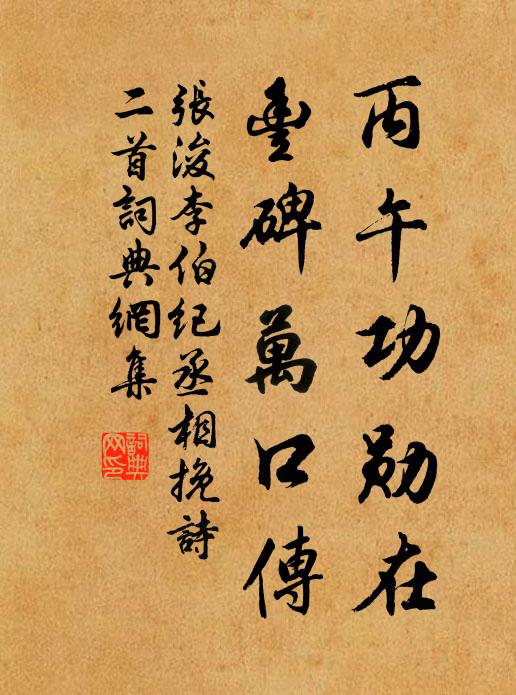 丙午功勛在
豊碑萬口傳
張浚李伯紀丞相挽詩
二首詞典網集
詞典網印